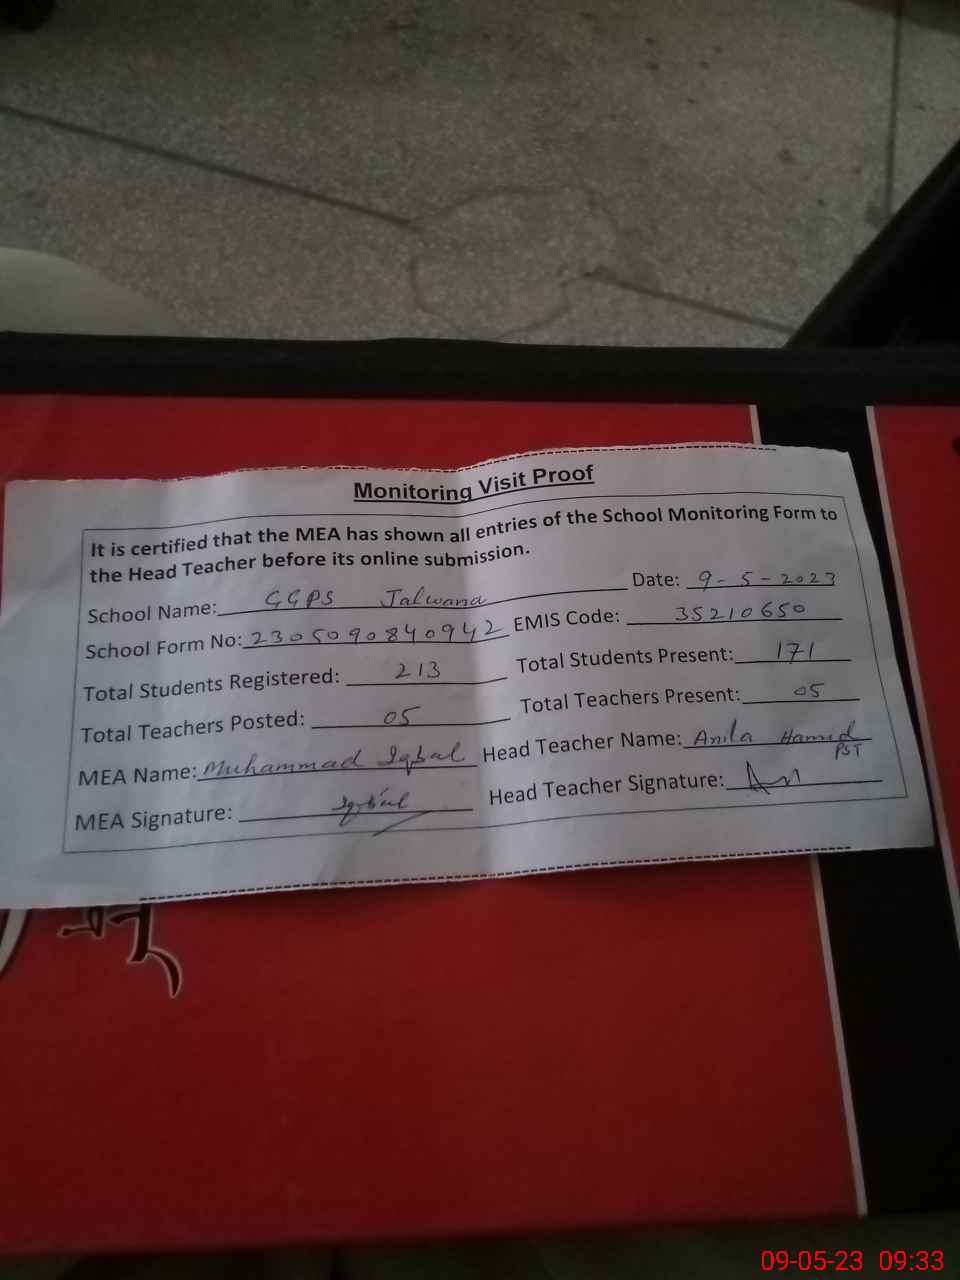 Monitoring Visit Proof
It is certified that the MEA has shown all entries of the School Monitoring Form to
the Head Teacher before its online submission.
School Name: GGPS Jalwana Date: 9-5-2023
School Form No: 2305090840942 EMIS Code: 35210650
Total Students Registered: 213 Total Students Present: 171
Total Teachers Posted: 05 Total Teachers Present: 05
MEA Name: Muhammad Iqbal Head Teacher Name: Anila Hamid
PST
MEA Signature: Iqbal Head Teacher Signature:
09-05-23 09:33